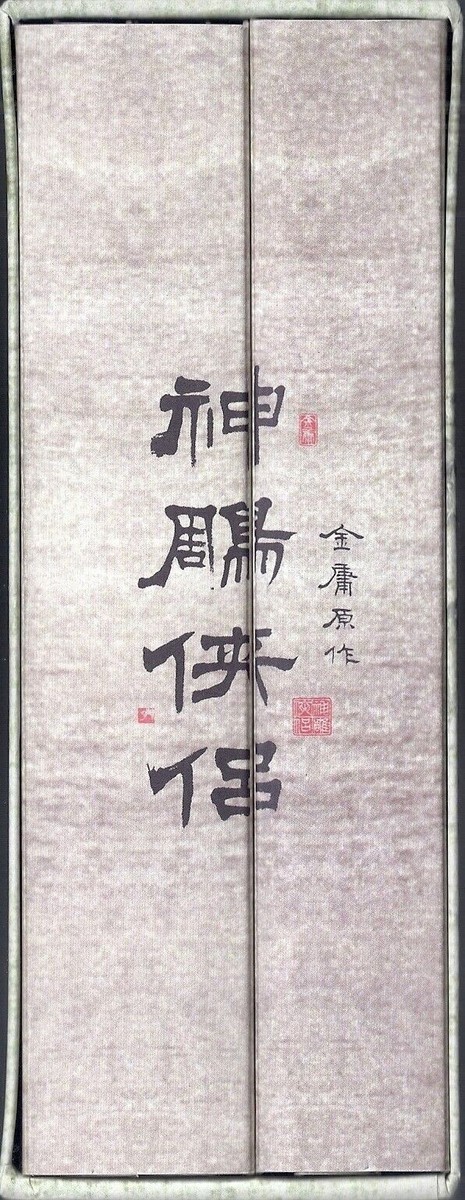 神鵰俠侶
金庸原作